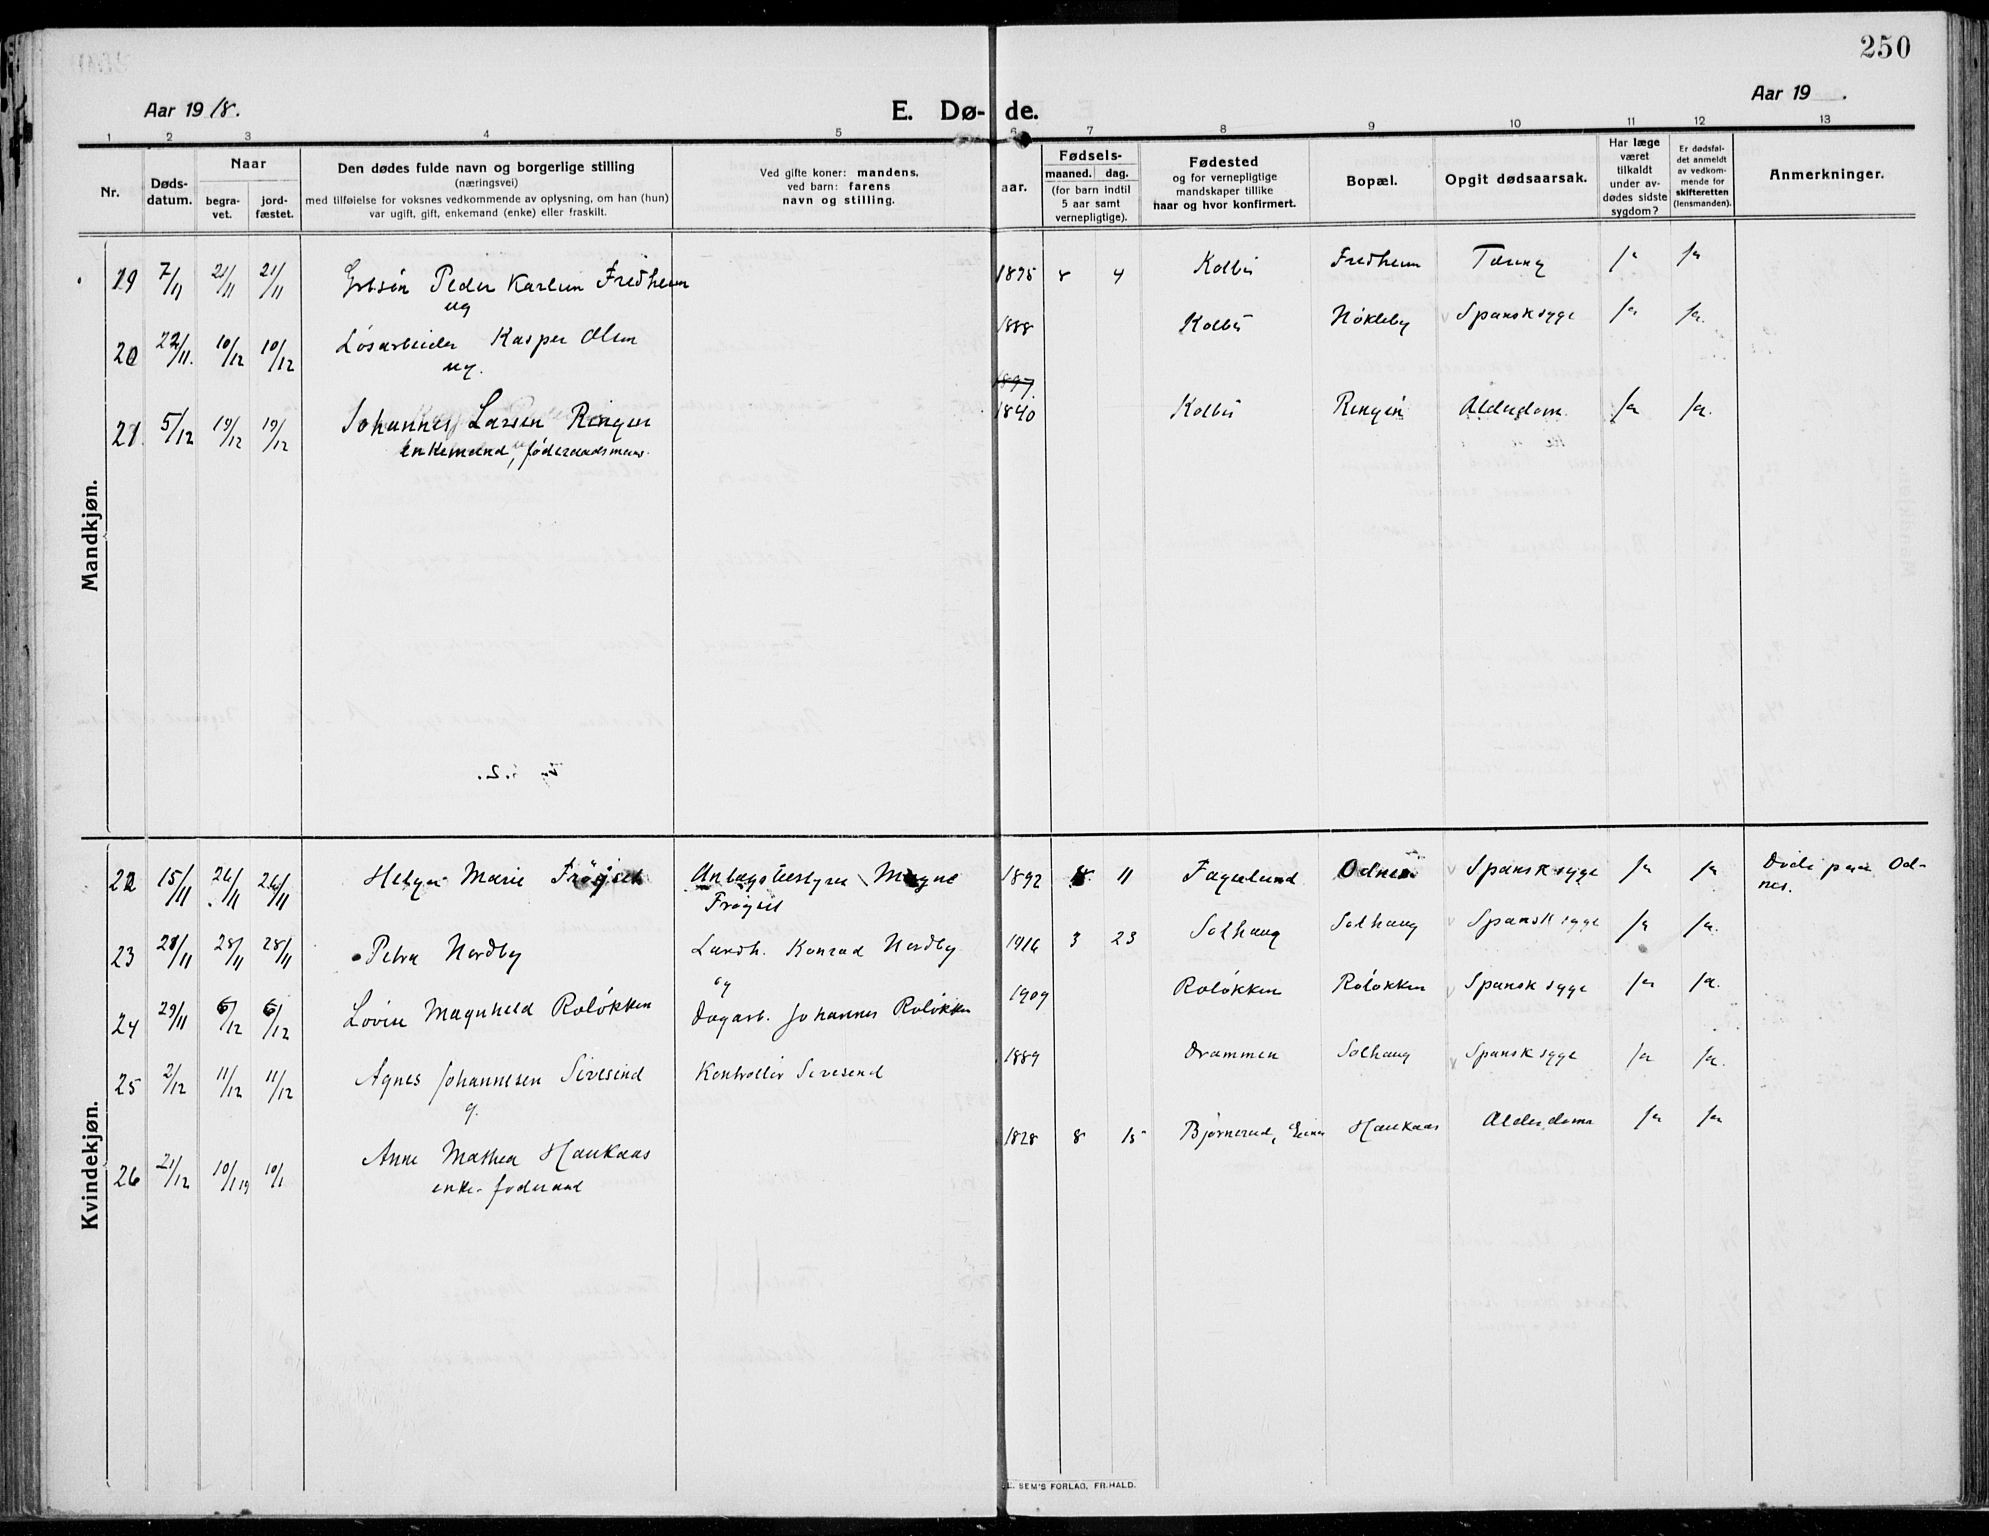 250
Aar 1918.
E. Dø- de.
Aar 19 .
1 2 3 4 5 6 7 8 9 10 11 12 13
Nr.
Døds-
datum.
Naar
begra-
vet.
jord-
fæstet.
Den dødes fulde navn og borgerlige stilling
(næringsvei)
med tilføielse for voksnes vedkommende av oplysning, om han (hun)
var ugift, gift, enkemand (enke) eller fraskilt.
Ved gifte koner: mandens,
ved barn: farens
navn og stilling.
aar.
Fødsels-
maaned. dag.
(for barn indtil
5 aar samt
vernepligtige).
Fødested
og for vernepligtige
mandskaper tillike
naar og hvor konfirmert.
Bopæl.
Opgit dødsaarsak.
Har læge
været
tilkaldt
under av-
dødes sidste
sygdom?
Er dødsfal-
det anmeldt
av vedkom-
mende for
skifteretten
(lensmanden).
Anmerkninger.
Mandkjøn.
19 7/11 21/11 21/11 Grbsøn Peder Karlun Fredheim 1895 8 4 Kolbu Fredheim Tæring ja ja
ug
20 22/11. 10/12 10/12 Løsarbeider Kasper Olsen 1888 Kolbu Nøkleby Spansksyge ja ja.
ug.
1897
21. 5/12 19/12 19/12 Johannes Larsen Ringen 1840 Kolbu Ringen Alderdom ja ja.
enkemand, føderaadsmann.
Kvindekjøn.
22 15/11 26/11 26/11 Helga Marie Frøisét Anlægsbestyrer Magne 1892 8 11 Fagerlund Odnes Spansksyge ja ja Døde paa Od-
Frøysét nes.
23 21/11 28/11 28/11 Petra Nordby Landh. Konrad Nordby 1916 3 23 Solhaug Solhaug Spansksyge ja ja.
24 29/11 6/12 6/12 Lovise Magnhild Roløkken Dagarb. Johannes Roløkken 1909 Roløkken Roløkken Spansksyge ja ja.
25 2/12 11/12 11/12 Agnes Johannesen Sivesind Kontrollør Sivesind 1889 Drammen Solhaug Spansksyge ja ja.
g.
26 21/12 10/1 19 10/1 Anne Mathea Haukaas 1828 8 15 Bjørnerud, Eina Haukaas Alderdom ja ja
enke. føderaad
E. SEM'S FORLAG, FR.HALD.